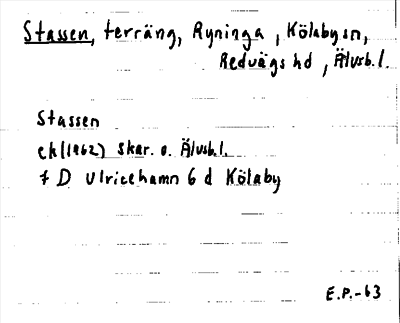 Stassen, terräng, Ryninga, Kölaby sn,
Redvägs hd, Älvsb.l.
Stassen
ek(1962) Skar. o. Älvsb.l.
7 D Ulricehamn 6 d Kölaby
E.P.-63